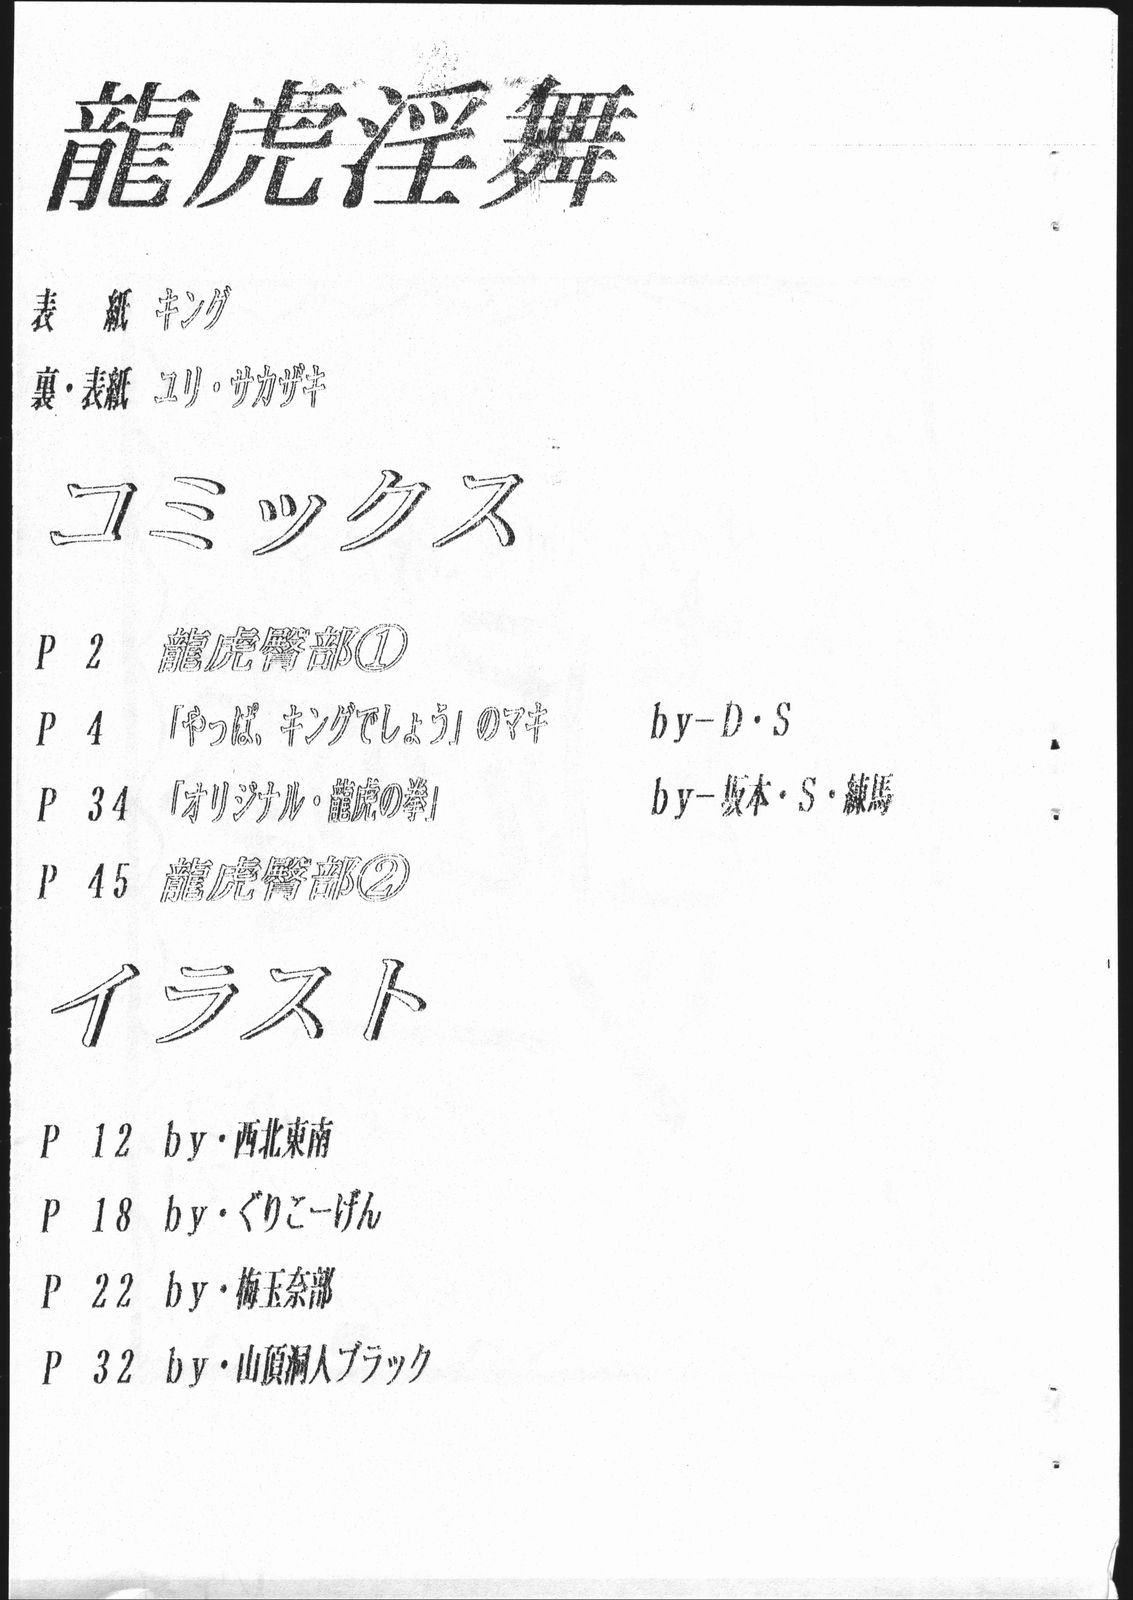 龍虎淫舞
表　紙 キング
裏・表紙 ユリ・サカザキ
コミックス
P 2 龍虎臀部①
P 4 「やっぱ、キングでしょう」のマキ by－D・S
P 34 「オリジナル・龍虎の拳」 by－坂本・S・練馬
P 45 龍虎臀部②
イラスト
P 12 by・西北東南
P 18 by・ぐりこーげん
P 22 by・梅玉奈部
P 32 by・山頂洞人ブラック